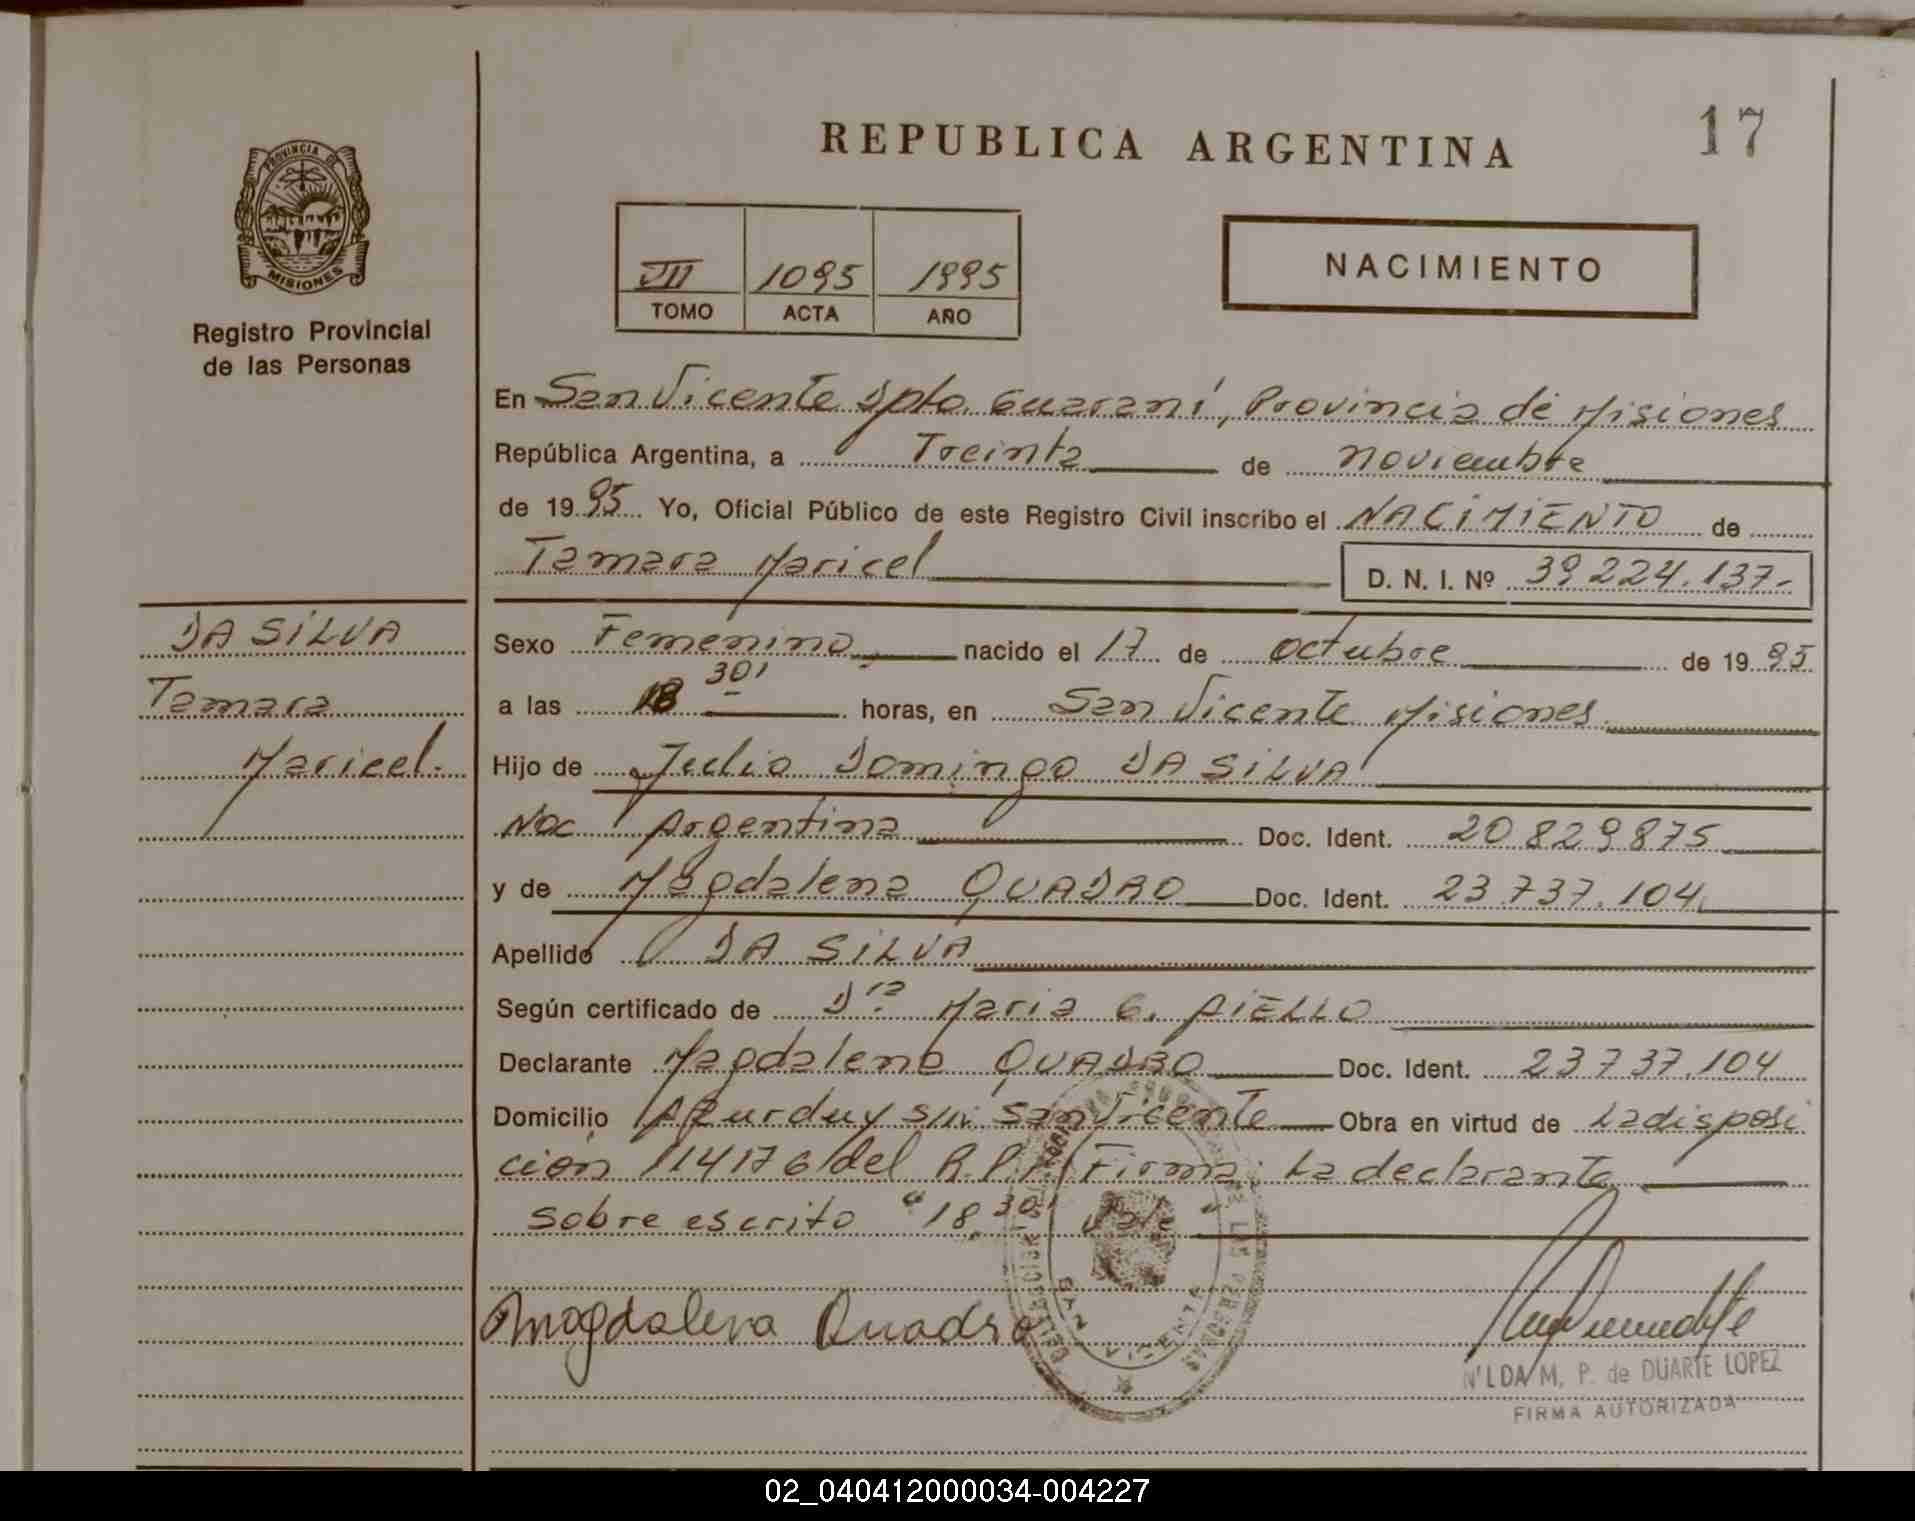 REPUBLICA ARGENTINA
17
PROVINCIA DE
MISIONES
Registro Provincial
de las Personas
VII 1095 1995
TOMO ACTA AÑO
NACIMIENTO
En San Vicente Dpto. Guaraní, Provincia de Misiones
República Argentina, a Treinta de noviembre
de 1995 Yo, Oficial Público de este Registro Civil inscribo el NACIMIENTO de
Tamara Maricel D. N. I. Nº 39.224.137.-
DA SILVA
Tamara
Maricel.
Sexo Femenino, nacido el 17 de octubre de 1995
a las 18 30' horas, en San Vicente Misiones
Hijo de Julio Domingo DA SILVA
Nac Argentina Doc. Ident. 20.829.875
y de Magdalena QUADRO Doc. Ident. 23.737.104.
Apellido DA SILVA
Según certificado de Dra. Maria G. AIELLO
Declarante Magdalena QUADRO Doc. Ident. 23.737.104
Domicilio Azurduy s/n. San Vicente Obra en virtud de La disposi
ción 114176/del R.P.P. Firma: La declarante
sobre escrito "18.30' Vale"
Magdalena Quadro
SAN VICENTE
NILDA M. P. de DUARTE LOPEZ
FIRMA AUTORIZADA
02_040412000034-004227